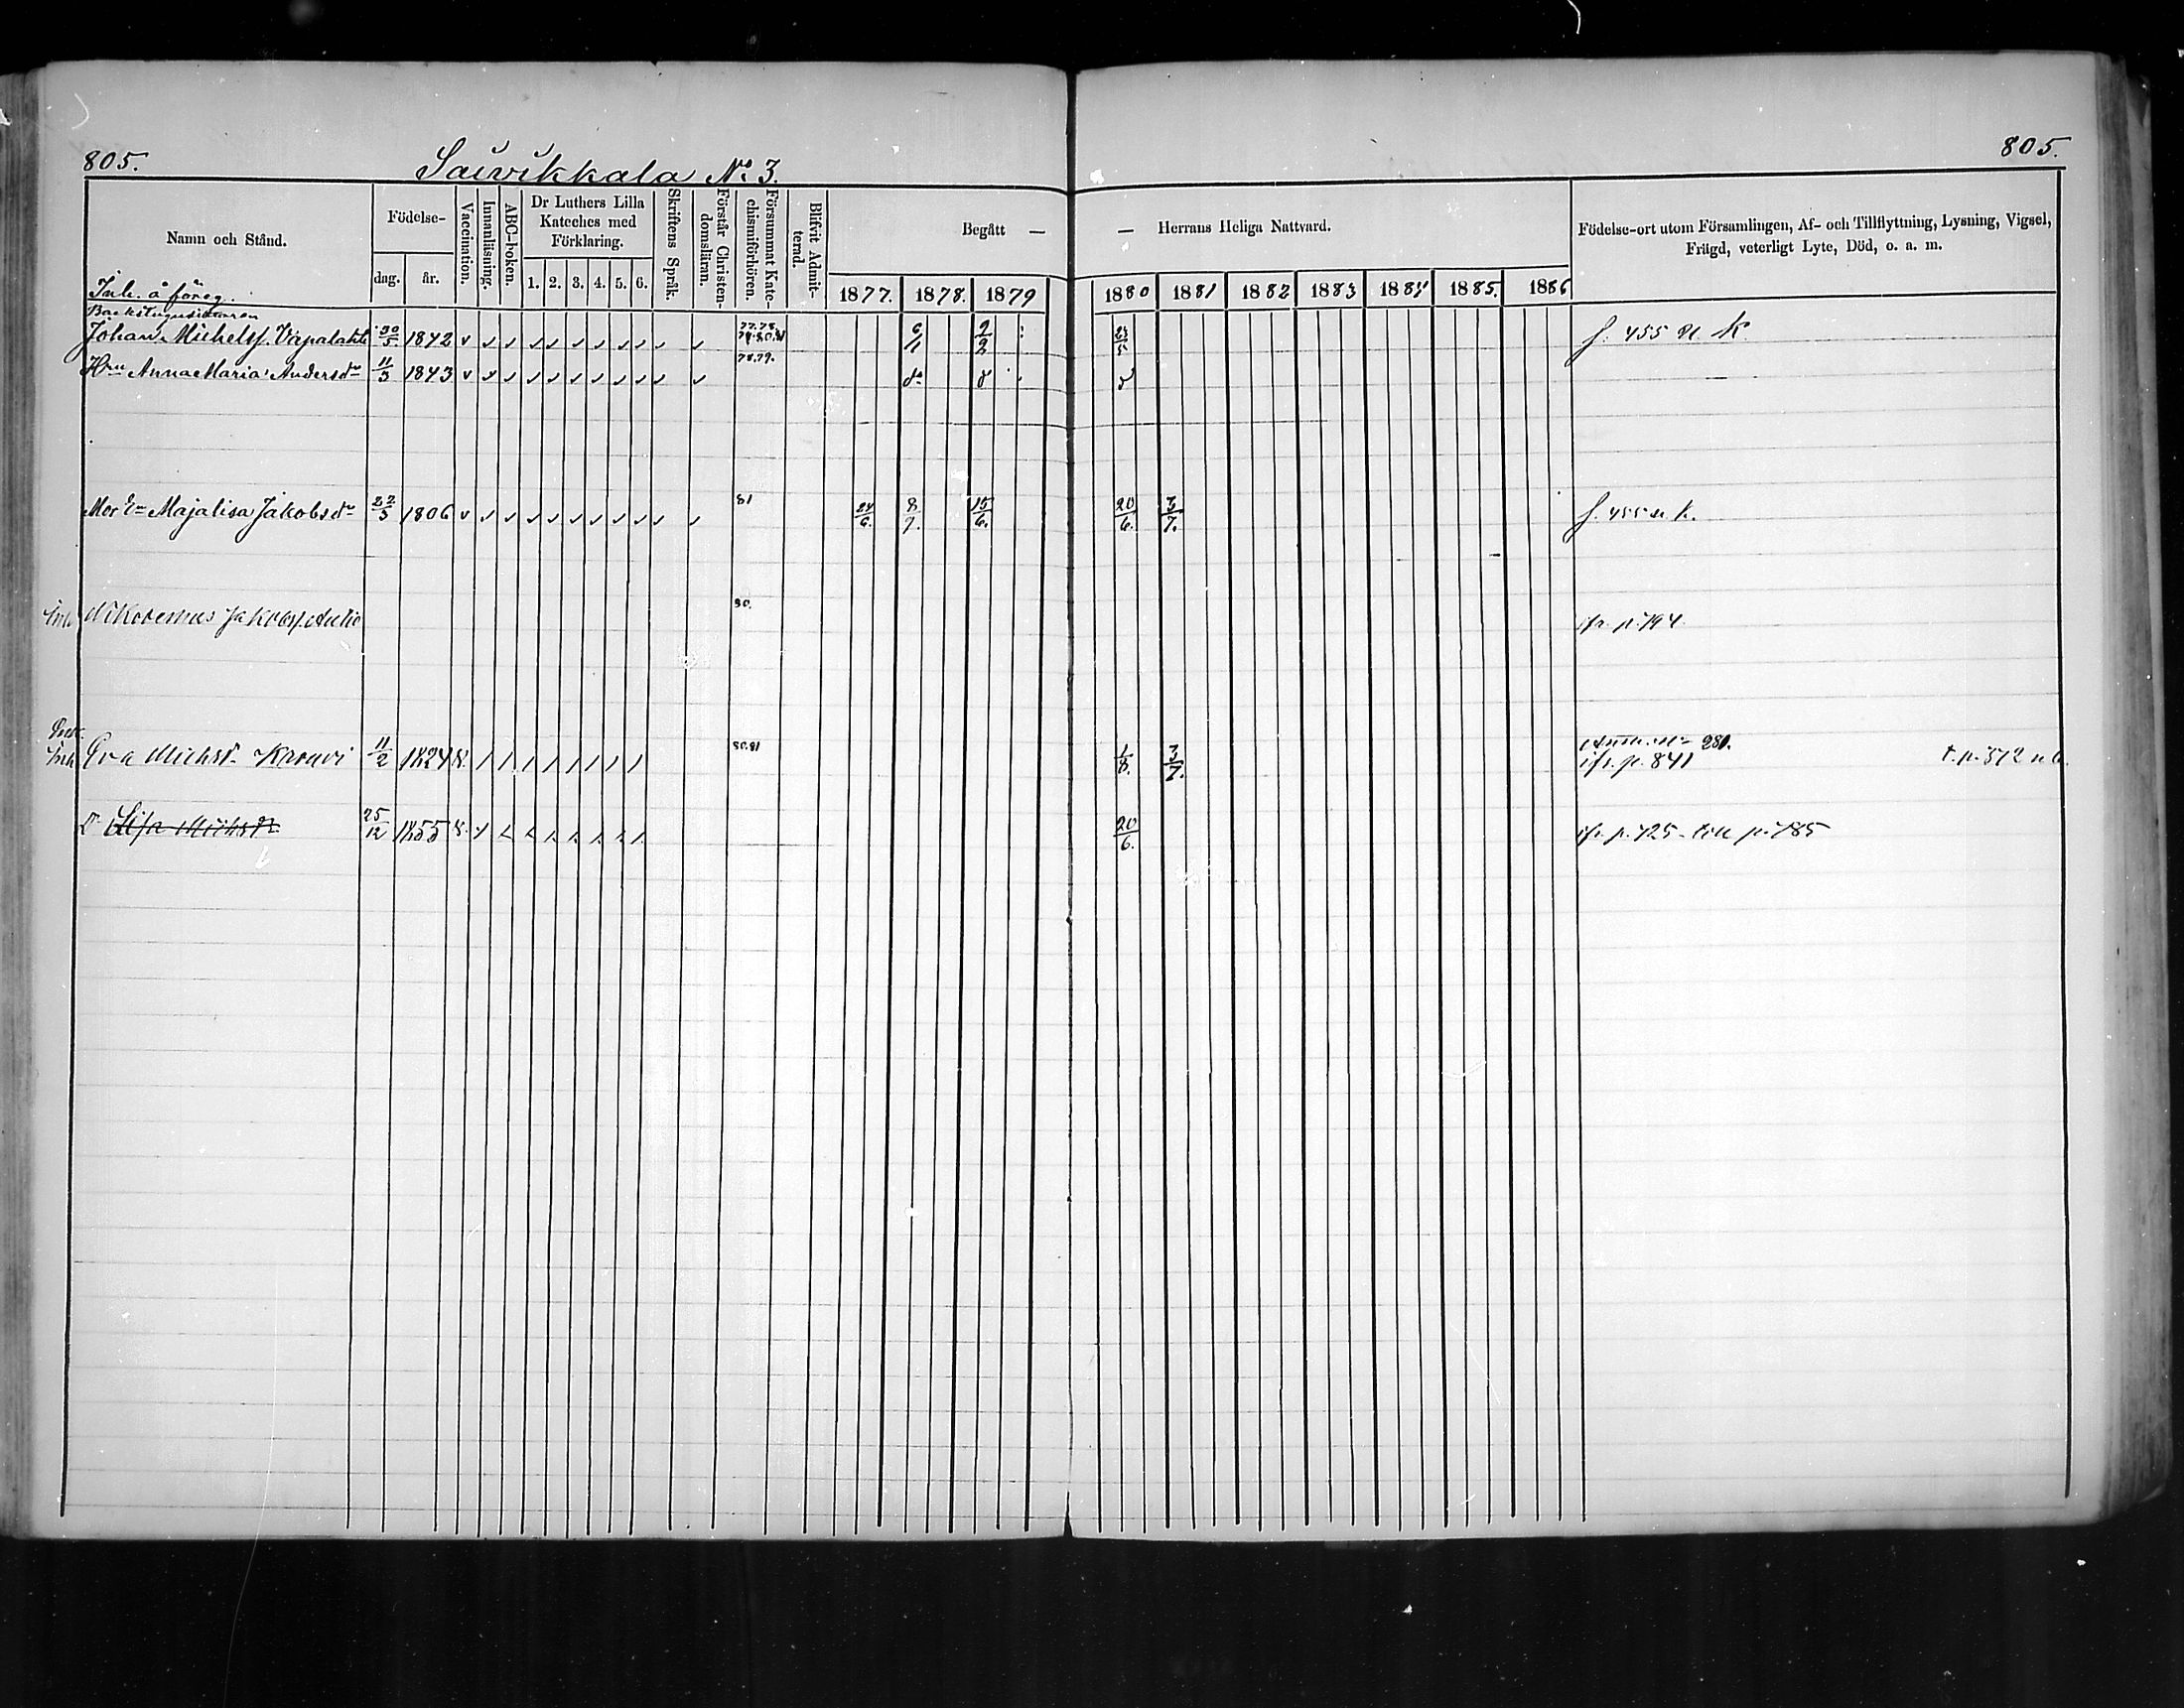 805.
Saivikkala No 3.
805.
Namn och Stånd.
Födelse-
dag.
år.
Vaccination.
Innanläsning.
ABC-boken.
Dr Luthers Lilla Kateches med Förklaring.
1. 2. 3. 4. 5. 6.
Skriftens Språk.
Förstår Christendomsläran.
Försummat Katechismiförhören.
Blifvit Admitterad.
Begått — — Herrans Heliga Nattvard.
1877. 1878. 1879 1880 1881 1882 1883 1884 1885. 1886
Födelse-ort utom Församlingen, Af- och Tillflyttning, Lysning, Vigsel,
Frägd, veterligt Lyte, Död, o. a. m.
Inh. å föreg.
Backstugusittaren
Johan Michelss. Vapalahti 30/5. 1842 77.78. 79.80.81 6/1 2/2 23/5 f. 455 n. k.
Hru Anna Maria Andersdr 11/3 1843 78.79. do d d
Mor Maja Lisa Jakobsdr 22/3 1806 81 24/6. 8/7. 15/6. 20/6. 3/7. f. 455 n. k.
Inh Nikodemus Jakobss. Autio 80. ifr. p. 794
Inh Eva Michsdr 11/2 1824 80.81 1/8. 3/7. 280. ifr. p. 841 t. p. 572 n b.
Dr Lisa Michsdr 25/12 1855 20/6. ifr p. 725 - till p. 785